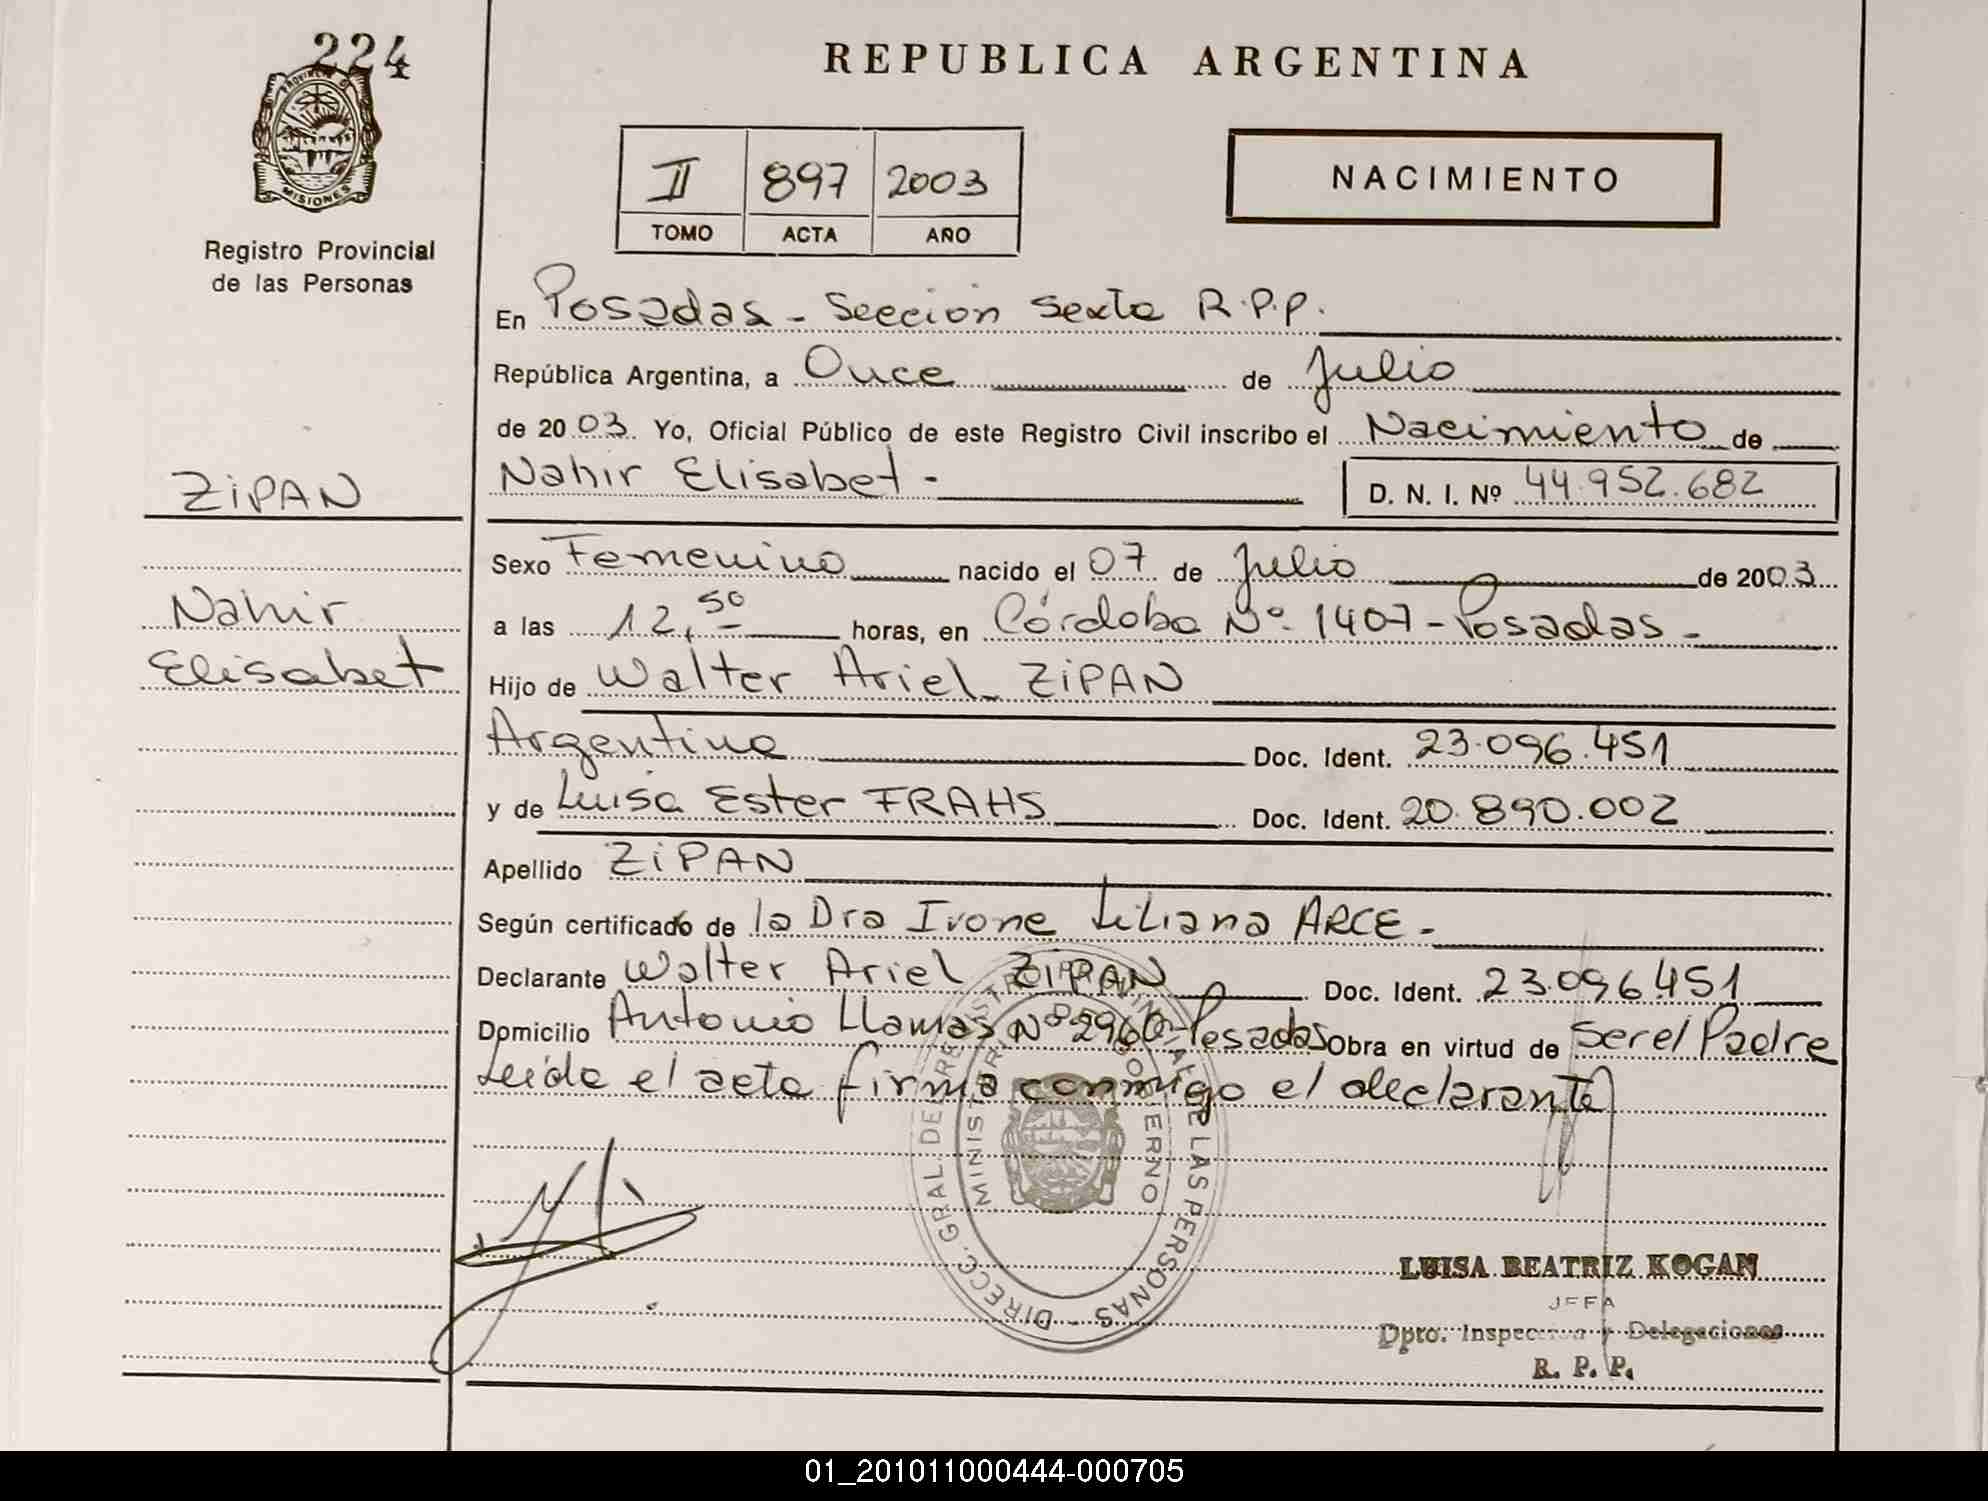 224
PROVINCIA DE
MISIONES
Registro Provincial
de las Personas
ZiPAN
Nahir
Elisabet
REPUBLICA ARGENTINA
II 897 2003
TOMO ACTA AÑO
NACIMIENTO
En Posadas - Seccion Sexta R.P.P.
República Argentina, a Once de Julio
de 2003. Yo, Oficial Público de este Registro Civil inscribo el Nacimiento de
Nahir Elisabet - D. N. I. Nº 44.952.682
Sexo Femenino nacido el 07 de Julio de 2003
a las 12,50 horas, en Córdoba Nº 1407 - Posadas -
Hijo de Walter Ariel ZiPAN
Argentina Doc. Ident. 23.096.451
y de Luisa Ester FRAHS Doc. Ident. 20.890.002
Apellido ZiPAN
Según certificado de la Dra Ivone Liliana ARCE -
Declarante Walter Ariel ZiPAN Doc. Ident. 23.096.451
Domicilio Antonio Llamas Nº 2960 - Posadas Obra en virtud de Ser el Padre
Leída el acta firma conmigo el declarante
DIRECC. GRAL. DE REGISTRO PROVINCIAL DE LAS PERSONAS -
MINISTERIO DE GOBIERNO
LUISA BEATRIZ KOGAN
JEFA
Dpto. Inspeccion y Delegaciones
R. P. P.
01_201011000444-000705